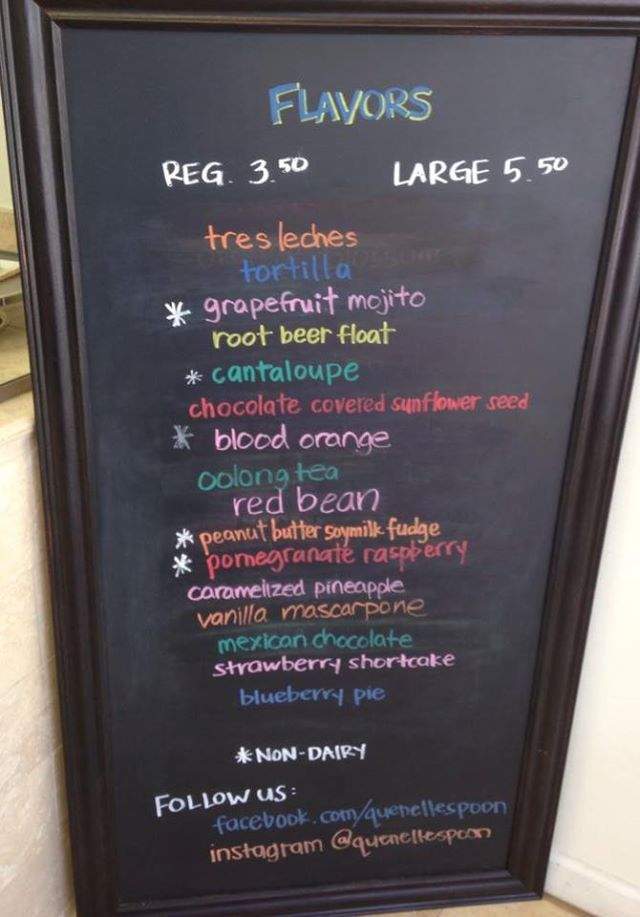 FLAVORS
REG. 3.50 LARGE 5.50
tres leches
tortilla
* grapefruit mojito
root beer float
* cantaloupe
chocolate covered sunflower seed
* blood orange
oolong tea
red bean
* peanut butter soymilk fudge
* pomegranate raspberry
caramelized pineapple
vanilla mascarpone
mexican chocolate
strawberry shortcake
blueberry pie
* NON-DAIRY
FOLLOW US:
facebook.com/quenellespoon
instagram @quenellespoon